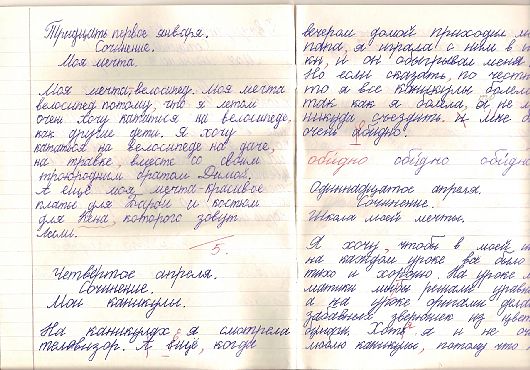 Тридцать первое января.
Сочинение.
Моя мечта.
Моя мечта, велосипед. Моя мечта
велосипед потому, что я летом
очен хочу кататися на велосипеде,
как другие дети. Я хочу
кататься на велосипеде на даче,
на травке, вместе со своим
троюродним братом Димой.
А ещё моя мечта-красивое
платье для Барби и костюм
для Кена, которого зовут
5.
Четвертое апреля.
Сочинение.
Мои каникулы.
На каникулах я смотрела
телевизор. А ещё, когда
вечером домой приходил
папа, я играла с ним в
и он обыгрывал меня
Но если сказать, по чест
то я все каникулы болела
так как я болела, я не
никуда съездить. И мне
очень обидно!
обидно обидно обидно
Одиннадцатое апреля.
Сочинение.
Школа моей мечты.
Я хочу, чтобы в моей
на каждом уроке все было
тихо и хорошо. На уроке
матики мы решали
а на уроке оригами
забавных зверюшек из
бумаги. Хотя я и не
люблю каникулы, потому что